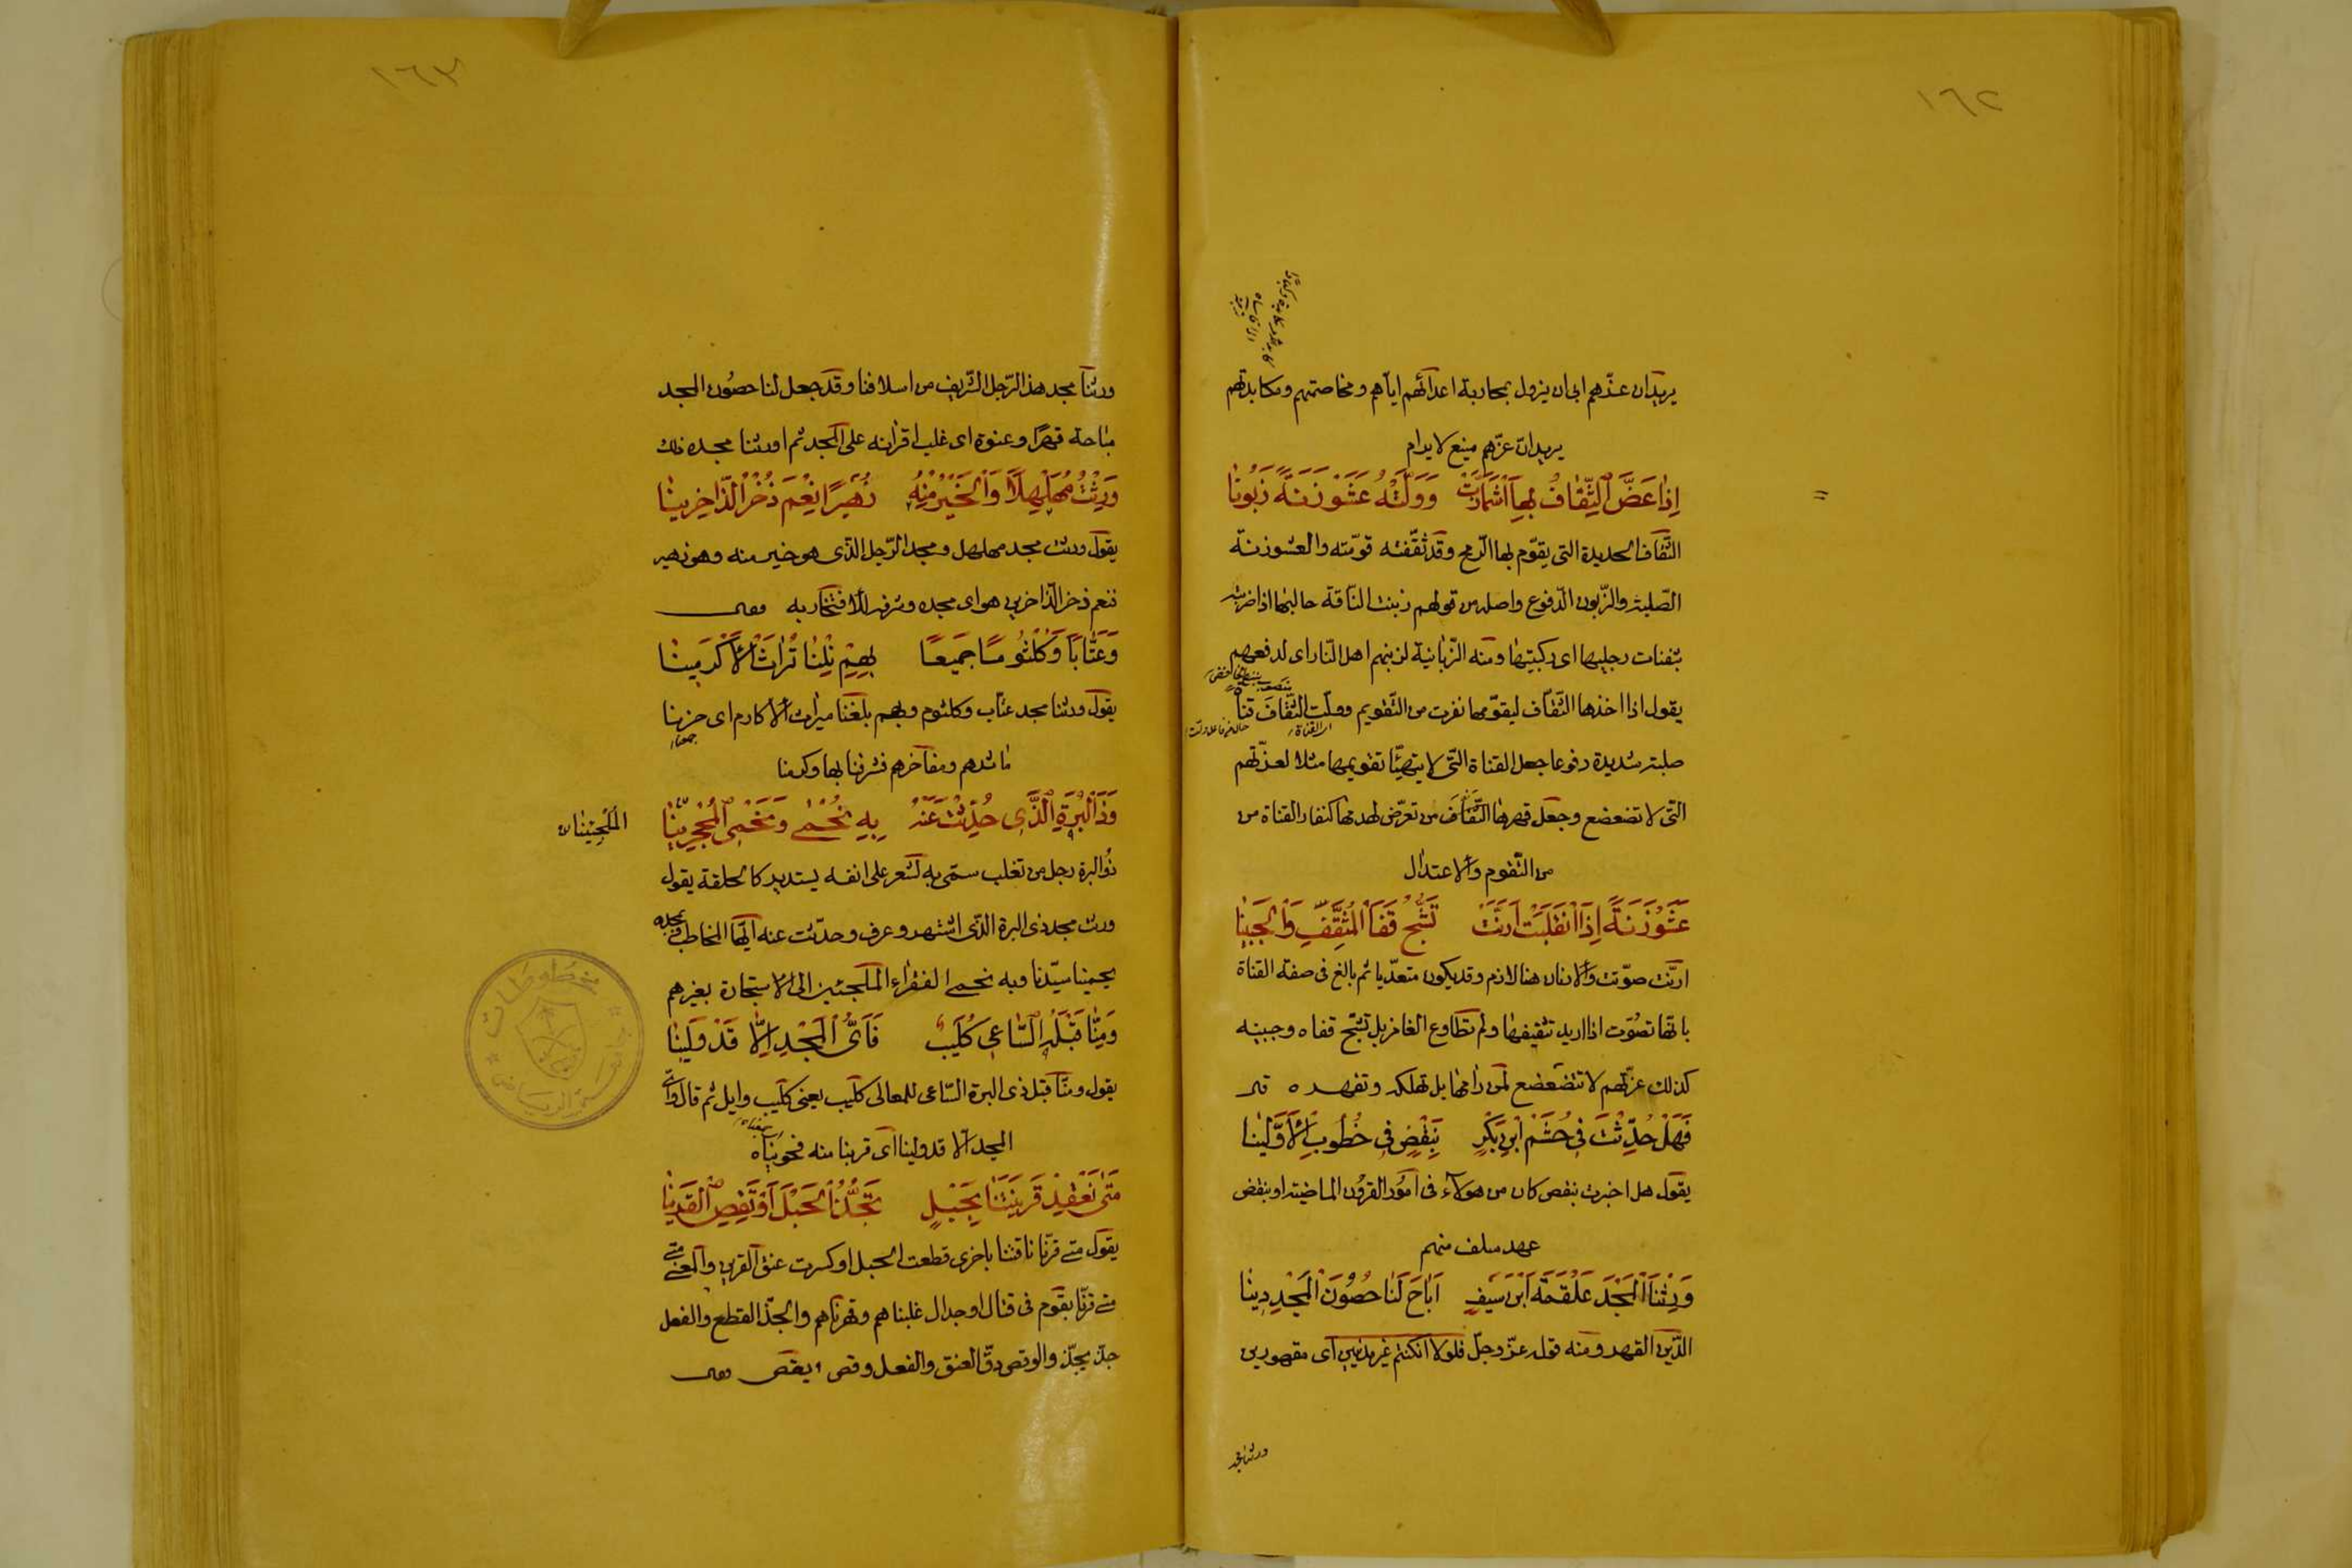 ١٦٢
يريد ان عزّهم ابى ان يزول بمحاربة اعدائهم اياهم ومخاصمتهم ومكايدتهم
يريد انّ عزّهم منيع لا يرام
اِذَا عَضَّ الثِّقَافُ بِهَا اشْمَأَزَّتْ وَوَلَّتْهُ عَشَوْزَنَةً زَبُونَا
الثّقاف الحديدة التى يقوّم بها الرّمح وقد ثقّفته قوّمته والعشوزنة
الصّلبة والزّبون الدّفوع واصله من قولهم زبنت الناقة حالبها اذا ضربته
بثفنات رجليها اى ركبتيها ومنه الزّبانية لزبنهم اهل النّار اى لدفعهم
يقول اذا اخذها الثّقاف ليقوّمها نفرت من التّقويم وولّت الثّقاف قناة
صلبة شديدة دفوعا جعل القناة الّتى لا يتهيّأ تقويمها مثلا لعزّتهم
الّتى لا تضعضع وجعل قهرها الثّقاف من تعرّض لهدمها كنفار القناة من
من التّقوم والاعتدال
عَشَوْزَنَةً اِذَا انْقَلَبَتْ اَرَنَّتْ تَشُجُّ قَفَا الْمُثَقِّفِ وَالْجَبِينَا
ارنّت صوّتت والارنان هنا لازم وقد يكون متعدّيا ثم بالغ فى صفة القناة
بانّها تصوّت اذا اريد تثقيفها ولم تطاوع الغامز بل تشجّ قفاه وجبينه
كذلك عزّتهم لا تتضعضع لمن رامها بل تهلكه وتقهره
فَهَلْ حُدِّثْتَ فِى جُشَمِ ابْنِ بَكْرٍ بِنَقْصٍ فِى خُطُوبِ الْاَوَّلِينَا
يقول هل اخبرت بنقص كان من هؤلاء فى امور القرون الماضية او بنقض
عهد سلف منهم
وَرِثْنَا الْمَجْدَ عَلْقَمَةَ ابْنَ سَيْفٍ اَبَاحَ لَنَا حُصُونَ الْمَجْدِ دِينَا
الدّين القهر ومنه قوله عزّ وجلّ فلولا ان كنتم غير مدينين اى مقهورين
ورثنا مجد
١٦٣
ورثنا مجد هذا الرّجل الشّريف من اسلافنا وقد جعل لنا حصون المجد
مباحة قهرا وعنوة اى غلب اقرانه على المجد ثم اورثنا مجده ذلك
وَرِثْتُ مُهَلْهِلًا وَالْخَيْرَ مِنْهُ زُهَيْرًا نِعْمَ ذُخْرُ الذَّاخِرِينَا
يقول ورثت مجد مهلهل ومجد الرّجل الذى هو خير منه وهو زهير
فنعم ذخر الذّاخرين هو اى مجده وشرفه للافتخار به
وَعَتَّابًا وَكُلْثُومًا جَمِيعًا بِهِمْ نِلْنَا تُرَاثَ الْاَكْرَمِينَا
يقول ورثنا مجد عتّاب وكلثوم وبهم بلغنا ميراث الاكارم اى حزنا
مآثرهم ومفاخرهم فشرفنا بها وكرمنا
وَذَا الْبُرَةِ الَّذِى حُدِّثْتَ عَنْهُ بِهِ نُحْمَى وَنَحْمِى الْمُحْجَرِينَا
ذو البرة رجل من تغلب سمّى به لشعر على انفه يستدير كالحلقة يقول
ورثت مجد ذى البرة الذّى اشتهر وعرف وحدّثت عنه ايّها المخاطب وبمجده
يحمينا سيّدنا وبه نحمى الفقراء الملجئين الى الاستجارة بغيرهم
وَمِنَّا قَبْلَهُ السَّاعِى كُلَيْبٌ فَاَىُّ الْمَجْدِ اِلَّا قَدْ وَلِينَا
يقول ومنّا قبل ذى البرة السّاعى للمعالى كليب يعنى كليب وايل ثم قال واىّ
المجد الّا قد ولينا اى قربنا منه فحويناه
مَتَى نَعْقِدْ قَرِينَتَنَا بِحَبْلٍ تَجُذُّ الْحَبْلَ اَوْ تَقِصِ الْقَرِينَا
يقول متى قرنّا ناقتنا باخرى قطعت الحبل او كسرت عنق القرين والمعنى
متى قرنّا بقوم فى قتال او جدال غلبناهم وقهرناهم والجذّ القطع والفعل
جذّ يجذّ والوقص دقّ العنق والفعل وقص يقص